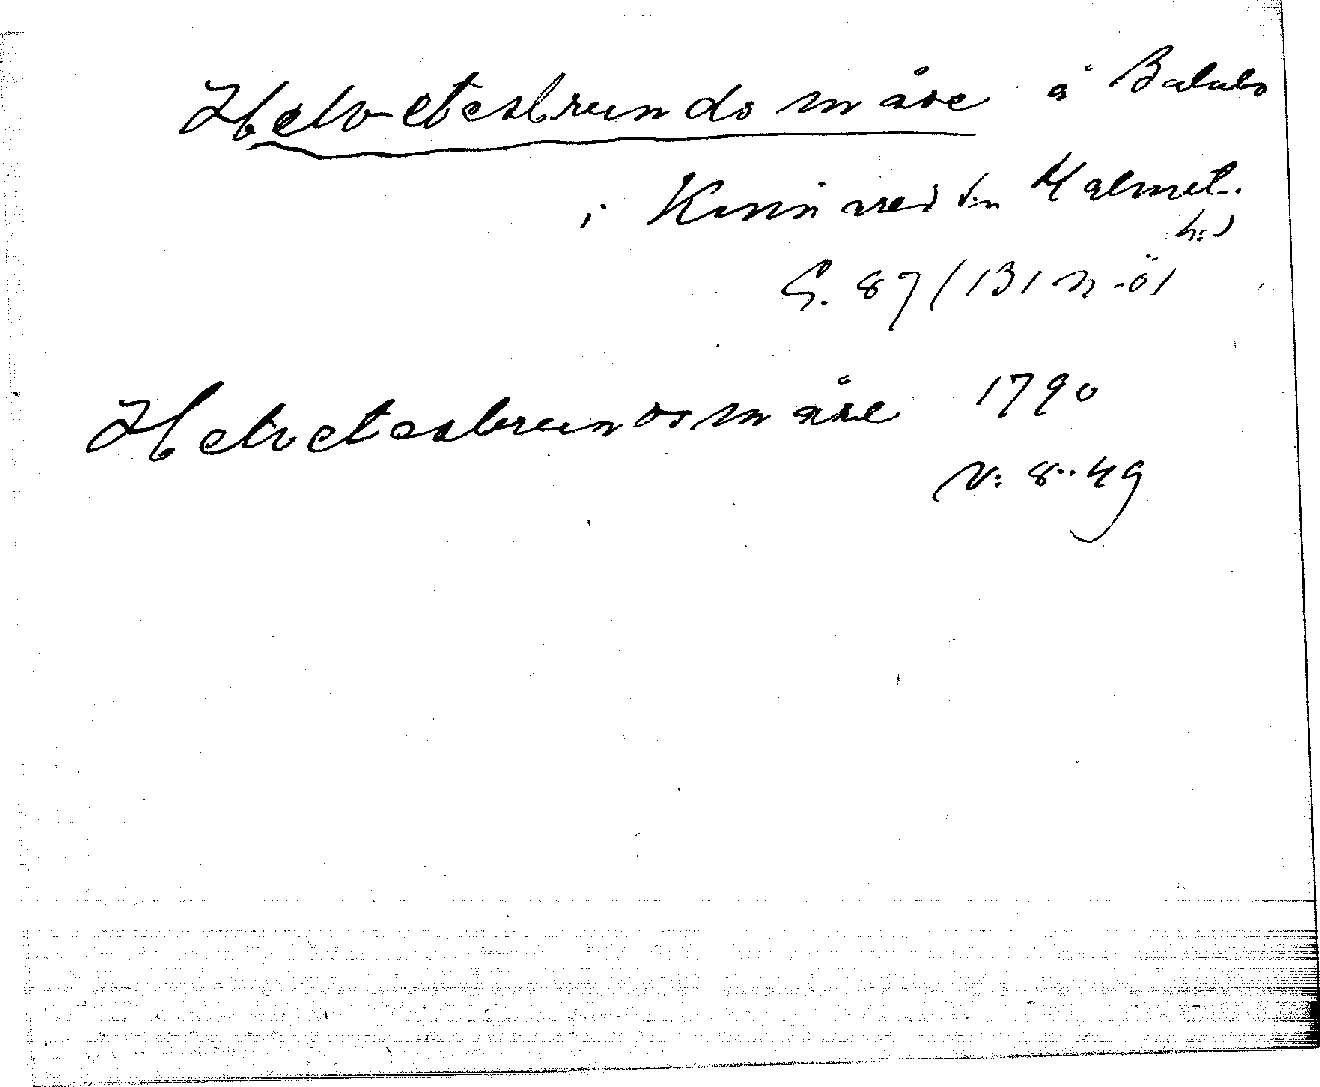 Helvetesbrundsmåse å Balabo
i Kinnared sn Halmst.
h:d
G. 87 / 131 n-öl
Helvetesbrunnsmåse 1790
N: 8.. 49